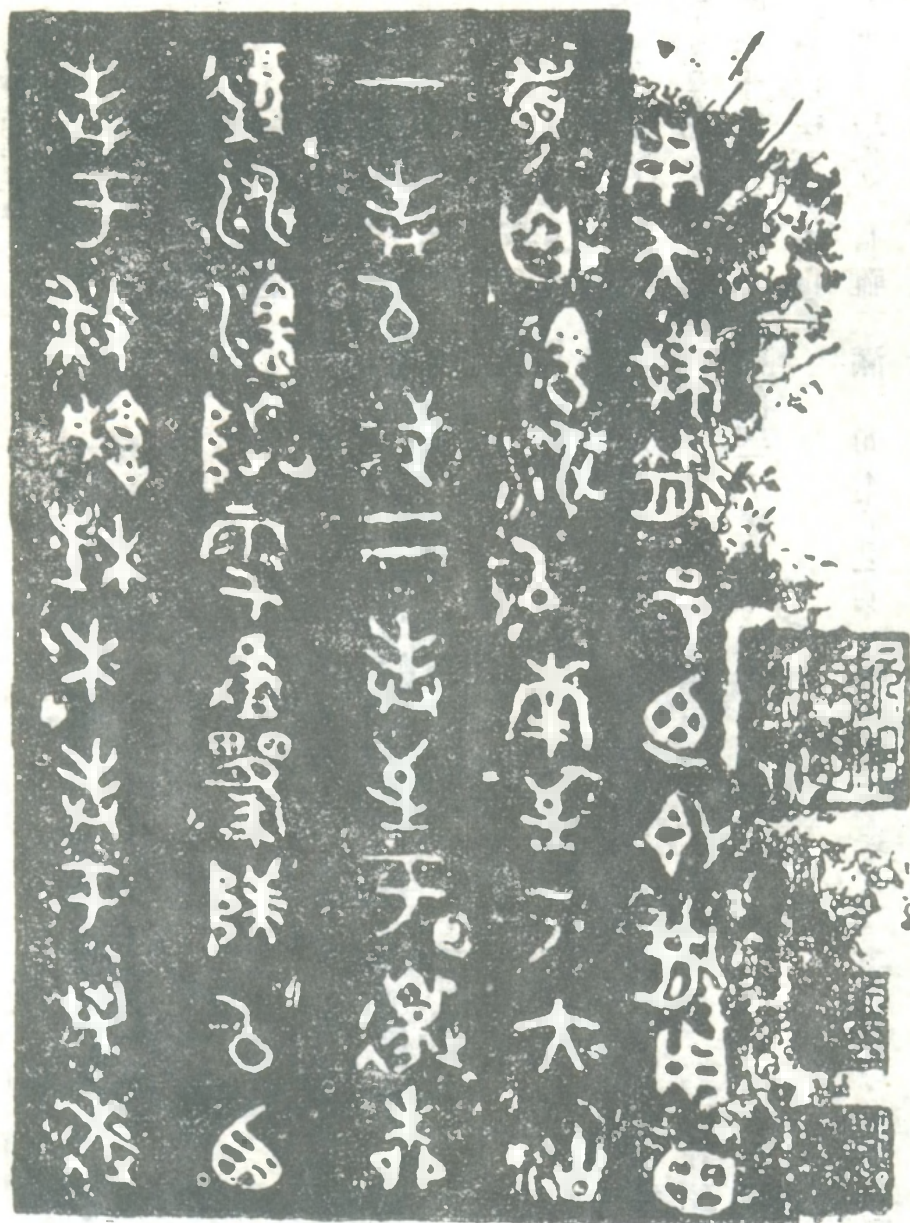 用夨𢦚散邑乃即散用田
眉自瀗涉以南至于大沽
一奉以陟二奉至于邊柳
復涉瀗陟雩𠭯𨤲𨺅以西
奉于播城楮木奉于芻逨